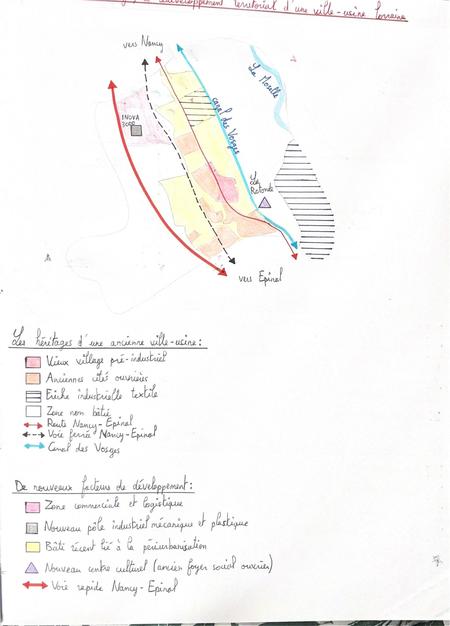 développement territorial d'une ville-usine lorraine
vers Nancy
La Moselle
canal des Vosges
INOVA
3000
La
Rotonde
vers Epinal
Les héritages d'une ancienne ville-usine:
Vieux village pré-industriel
Anciennes cités ouvrières
Friche industrielle textile
Zone non bâtie
Route Nancy-Epinal
Voie ferrée Nancy-Epinal
Canal des Vosges
De nouveaux facteurs de développement:
Zone commerciale et logistique
Nouveau pôle industriel mécanique et plastique
Bâti récent lié à la périurbanisation
Nouveau centre culturel (ancien foyer social ouvrier)
Voie rapide Nancy-Epinal